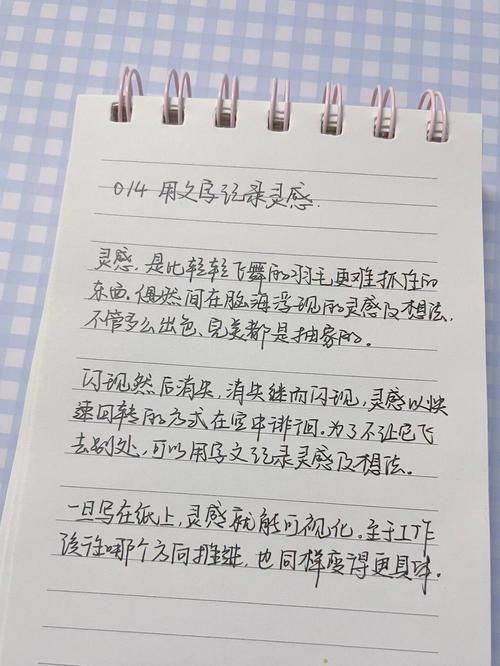 014 用文字记录灵感.
灵感，是比轻轻飞舞的羽毛更难抓住的
东西。偶然间在脑海浮现的灵感及想法，
不管多么出色、完美都是抽象的。
闪现然后消失，消失继而闪现，灵感以快
速回转的方式在空中徘徊。为了不让它飞
去别处，可以用字文记录灵感及想法。
一旦写在纸上，灵感就能可视化。至于工作
该往哪个方向推进，也同样变得更具体。